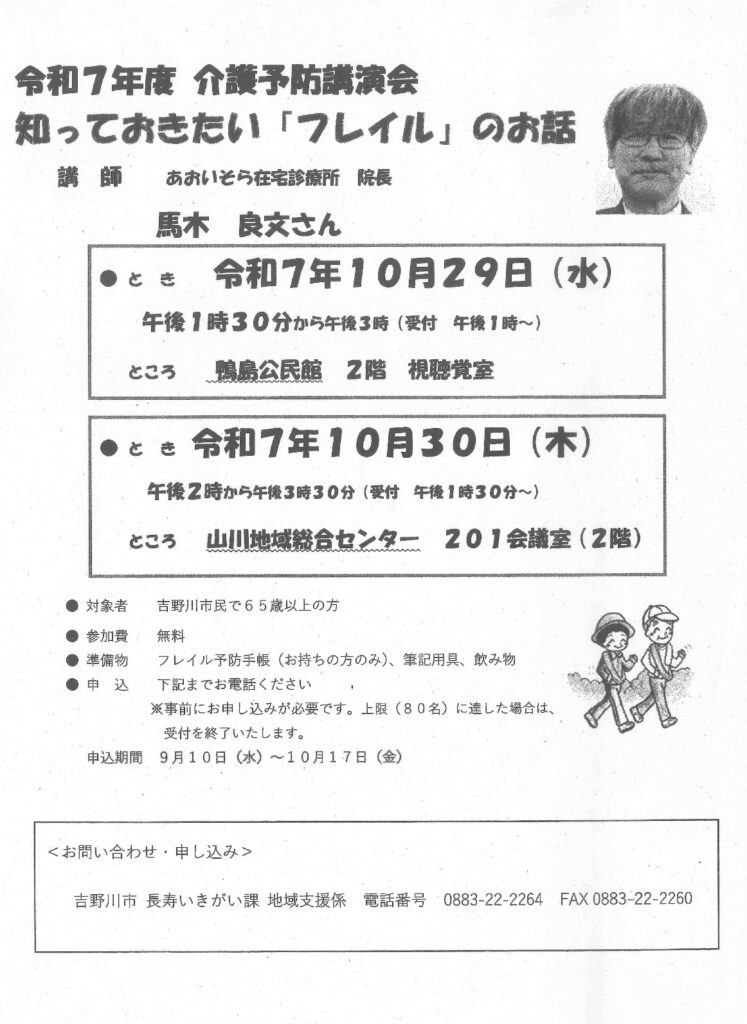 令和7年度 介護予防講演会
知っておきたい「フレイル」のお話
講 師 あおいそら在宅診療所 院長
馬木 良文さん
● と き 令和7年10月29日(水)
午後1時30分から午後3時(受付 午後1時~)
ところ 鴨島公民館 2階 視聴覚室
● と き 令和7年10月30日(木)
午後2時から午後3時30分(受付 午後1時30分~)
ところ 山川地域総合センター 201会議室(2階)
● 対象者 吉野川市民で65歳以上の方
● 参加費 無料
● 準備物 フレイル予防手帳(お持ちの方のみ)、筆記用具、飲み物
● 申 込 下記までお電話ください
※事前にお申し込みが必要です。上限(80名)に達した場合は、
受付を終了いたします。
申込期間 9月10日(水)~10月17日(金)
<お問い合わせ・申し込み>
吉野川市 長寿いきがい課 地域支援係 電話番号 0883-22-2264 FAX 0883-22-2260